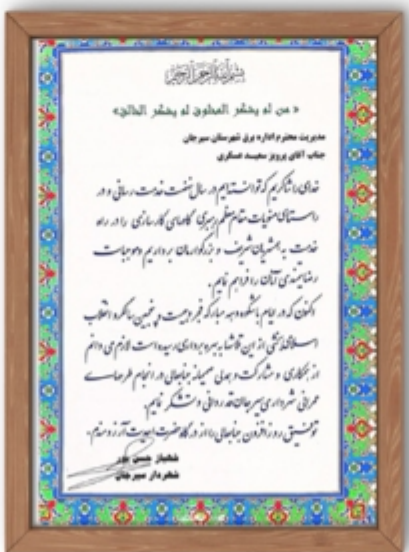 بسم الله الرحمن الرحیم
« من لم یشکر المخلوق لم یشکر الخالق»
مدیریت محترم اداره برق شهرستان سیرجان
جناب آقای پرویز سعید عسکری
خدای را شاکریم که توانسته‌ایم در سال نهضت خدمت رسانی و در
راستای منویات مقام معظم رهبری گامهای کارسازی را در راه
خدمت به همشهریان شریف و بزرگوارمان برداریم و موجبات
رضایتمندی آنان را فراهم نمایم.
اکنون که در ایام باشکوه دهه مبارکه فجر و بیست و پنجمین سالگرد انقلاب
اسلامی بخشی از این تلاشها به بهره برداری رسیده است لازم می دانم
از همکاری و مشارکت و همدلی صمیمانه جنابعالی در انجام طرحهای
عمرانی شهرداری سیرجان قدردانی و تشکر نمایم.
توفیق روز افزون جنابعالی را از درگاه حضرت احدیت آرزومندم.
شهباز حسن پور
شهردار سیرجان